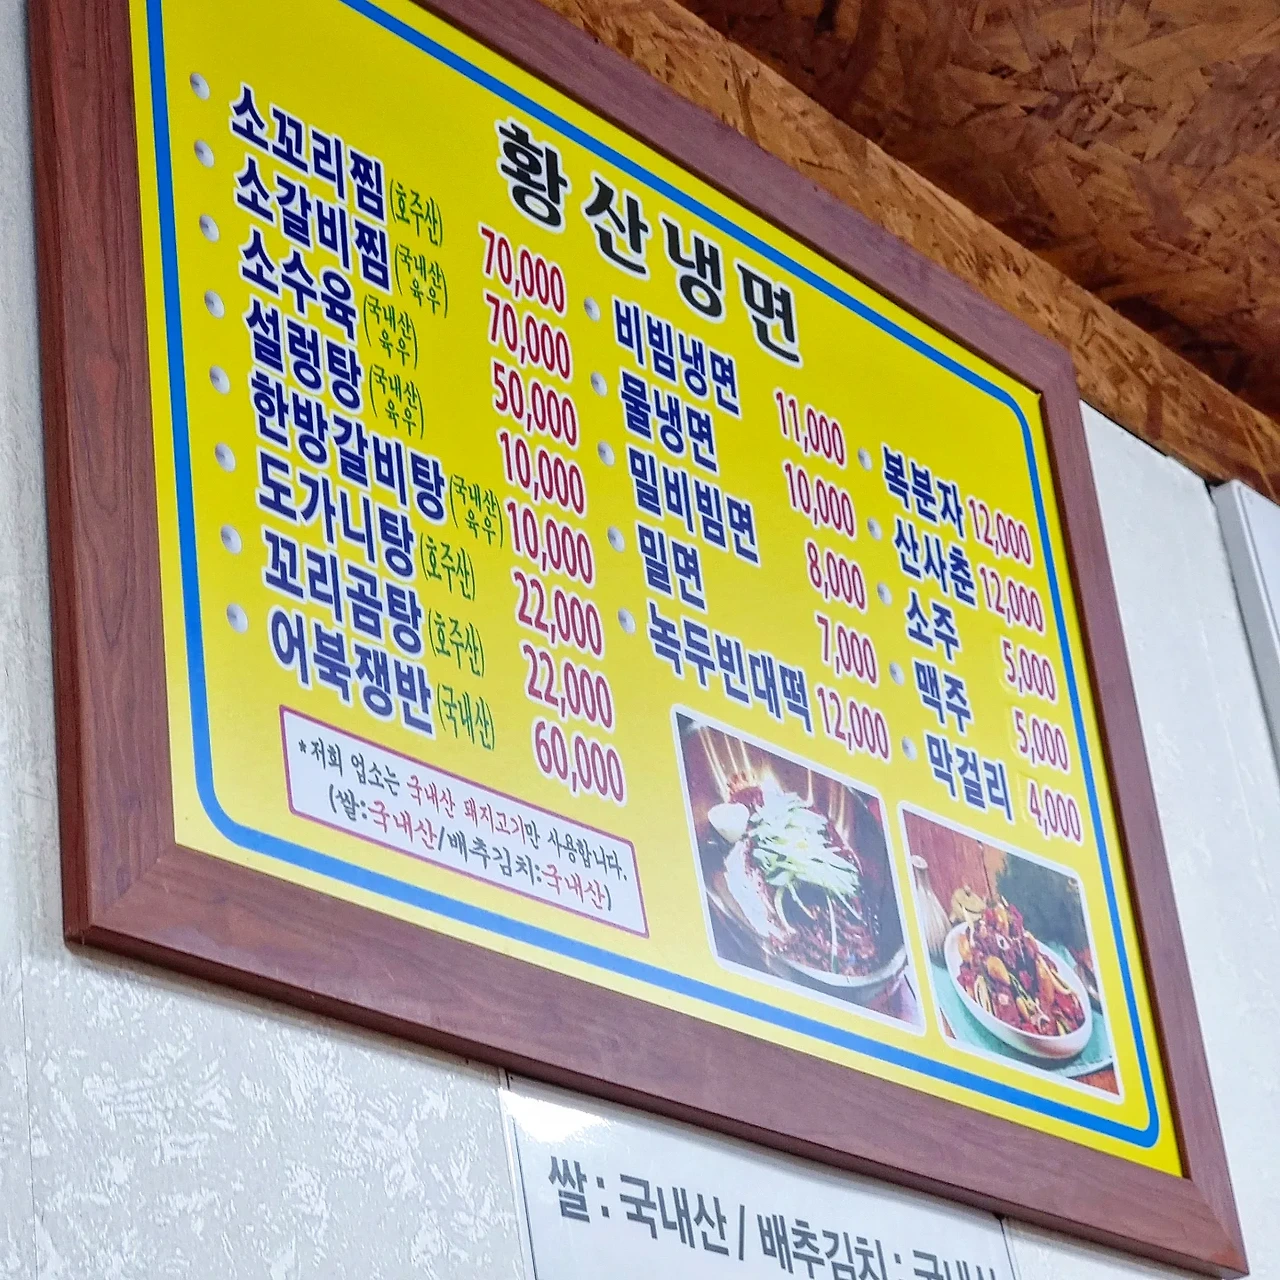 황산냉면
소꼬리찜(호주산) 70,000
소갈비찜(국내산 육우) 70,000
소수육(국내산 육우) 50,000
설렁탕(국내산 육우) 10,000
한방갈비탕(국내산 육우) 10,000
도가니탕(호주산) 22,000
꼬리곰탕(호주산) 22,000
어북쟁반(국내산) 60,000
비빔냉면 11,000
물냉면 10,000
밀비빔면 8,000
밀면 7,000
녹두빈대떡 12,000
복분자 12,000
산사춘 12,000
소주 5,000
맥주 5,000
막걸리 4,000
*저희 업소는 국내산 돼지고기만 사용합니다.
(쌀:국내산/배추김치:국내산)
쌀 : 국내산 / 배추김치 : 국내산